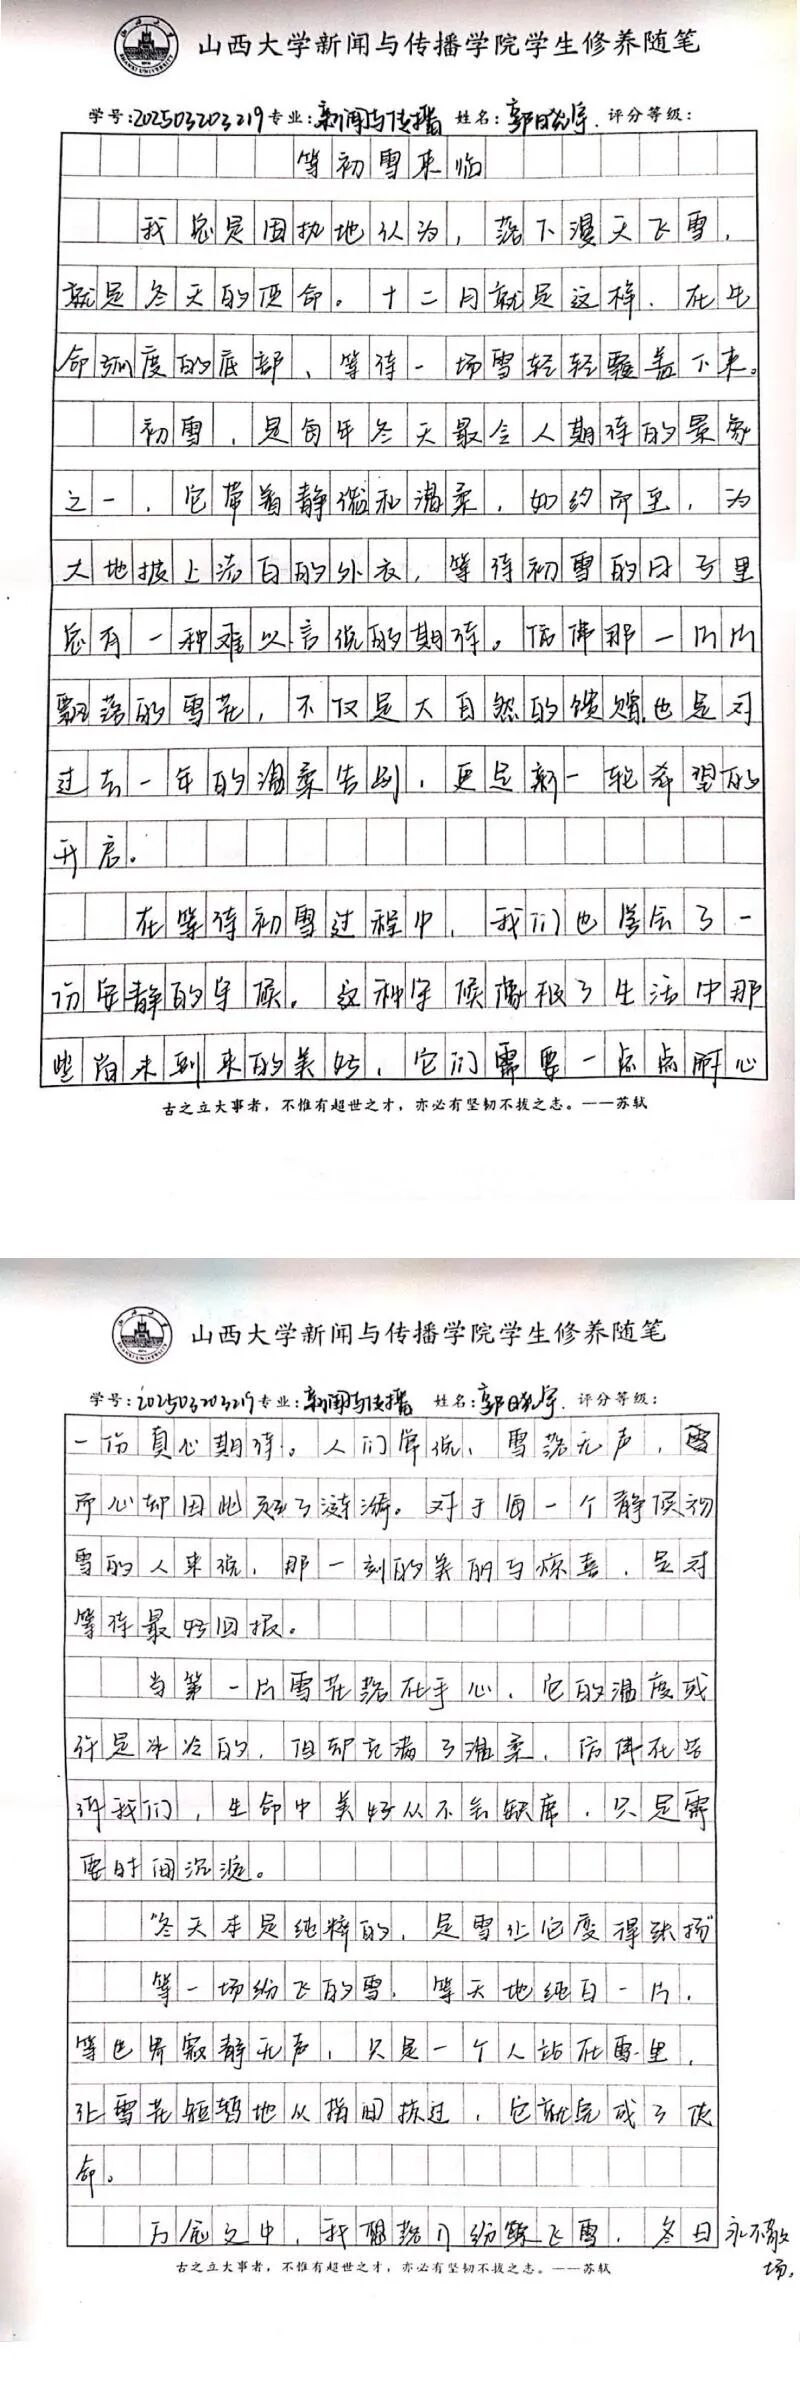 山西大学新闻与传播学院学生修养随笔
学号:202503203219 专业:新闻与传播 姓名:郭晓宇. 评分等级:
等初雪来临
我总是固执地认为，落下漫天飞雪，
就是冬天的使命。十二月就是这样，在生
命弧度的底部，等待一场雪轻轻覆盖下来。
初雪，是每年冬天最令人期待的景象
之一，它带着静谧和温柔，如约而至，为
大地披上洁白的外衣，等待初雪的日子里
总有一种难以言说的期待。仿佛那一片片
飘落的雪花，不仅是大自然的馈赠，也是对
过去一年的温柔告别，更是新一轮希望的
开启。
在等待初雪过程中，我们也学会了一
份安静的守候。这种守候像极了生活中那
些尚未到来的美好，它们需要一点点耐心
古之立大事者，不惟有超世之才，亦必有坚韧不拔之志。——苏轼
山西大学新闻与传播学院学生修养随笔
学号:202503203219 专业:新闻与传播 姓名:郭晓宇. 评分等级:
一份真心期待。人们常说，雪落无声，
而心却因此起了涟漪。对于每一个静候初
雪的人来说，那一刻的美丽与惊喜，是对
等待最好回报。
当第一片雪花落在手心，它的温度或
许是冰冷的，但却充满了温柔，仿佛在告
诉我们，生命中美好从不会缺席，只是需
要时间沉淀。
“冬天本是纯粹的，是雪让它变得张扬”
等一场纷飞的雪，等天地纯白一片，
等世界寂静无声，只是一个人站在雪里，
让雪花短暂地从指间掠过，它就完成了使
命。
万念之中，我愿落入纷飞雪，冬日永不散
场。
古之立大事者，不惟有超世之才，亦必有坚韧不拔之志。——苏轼